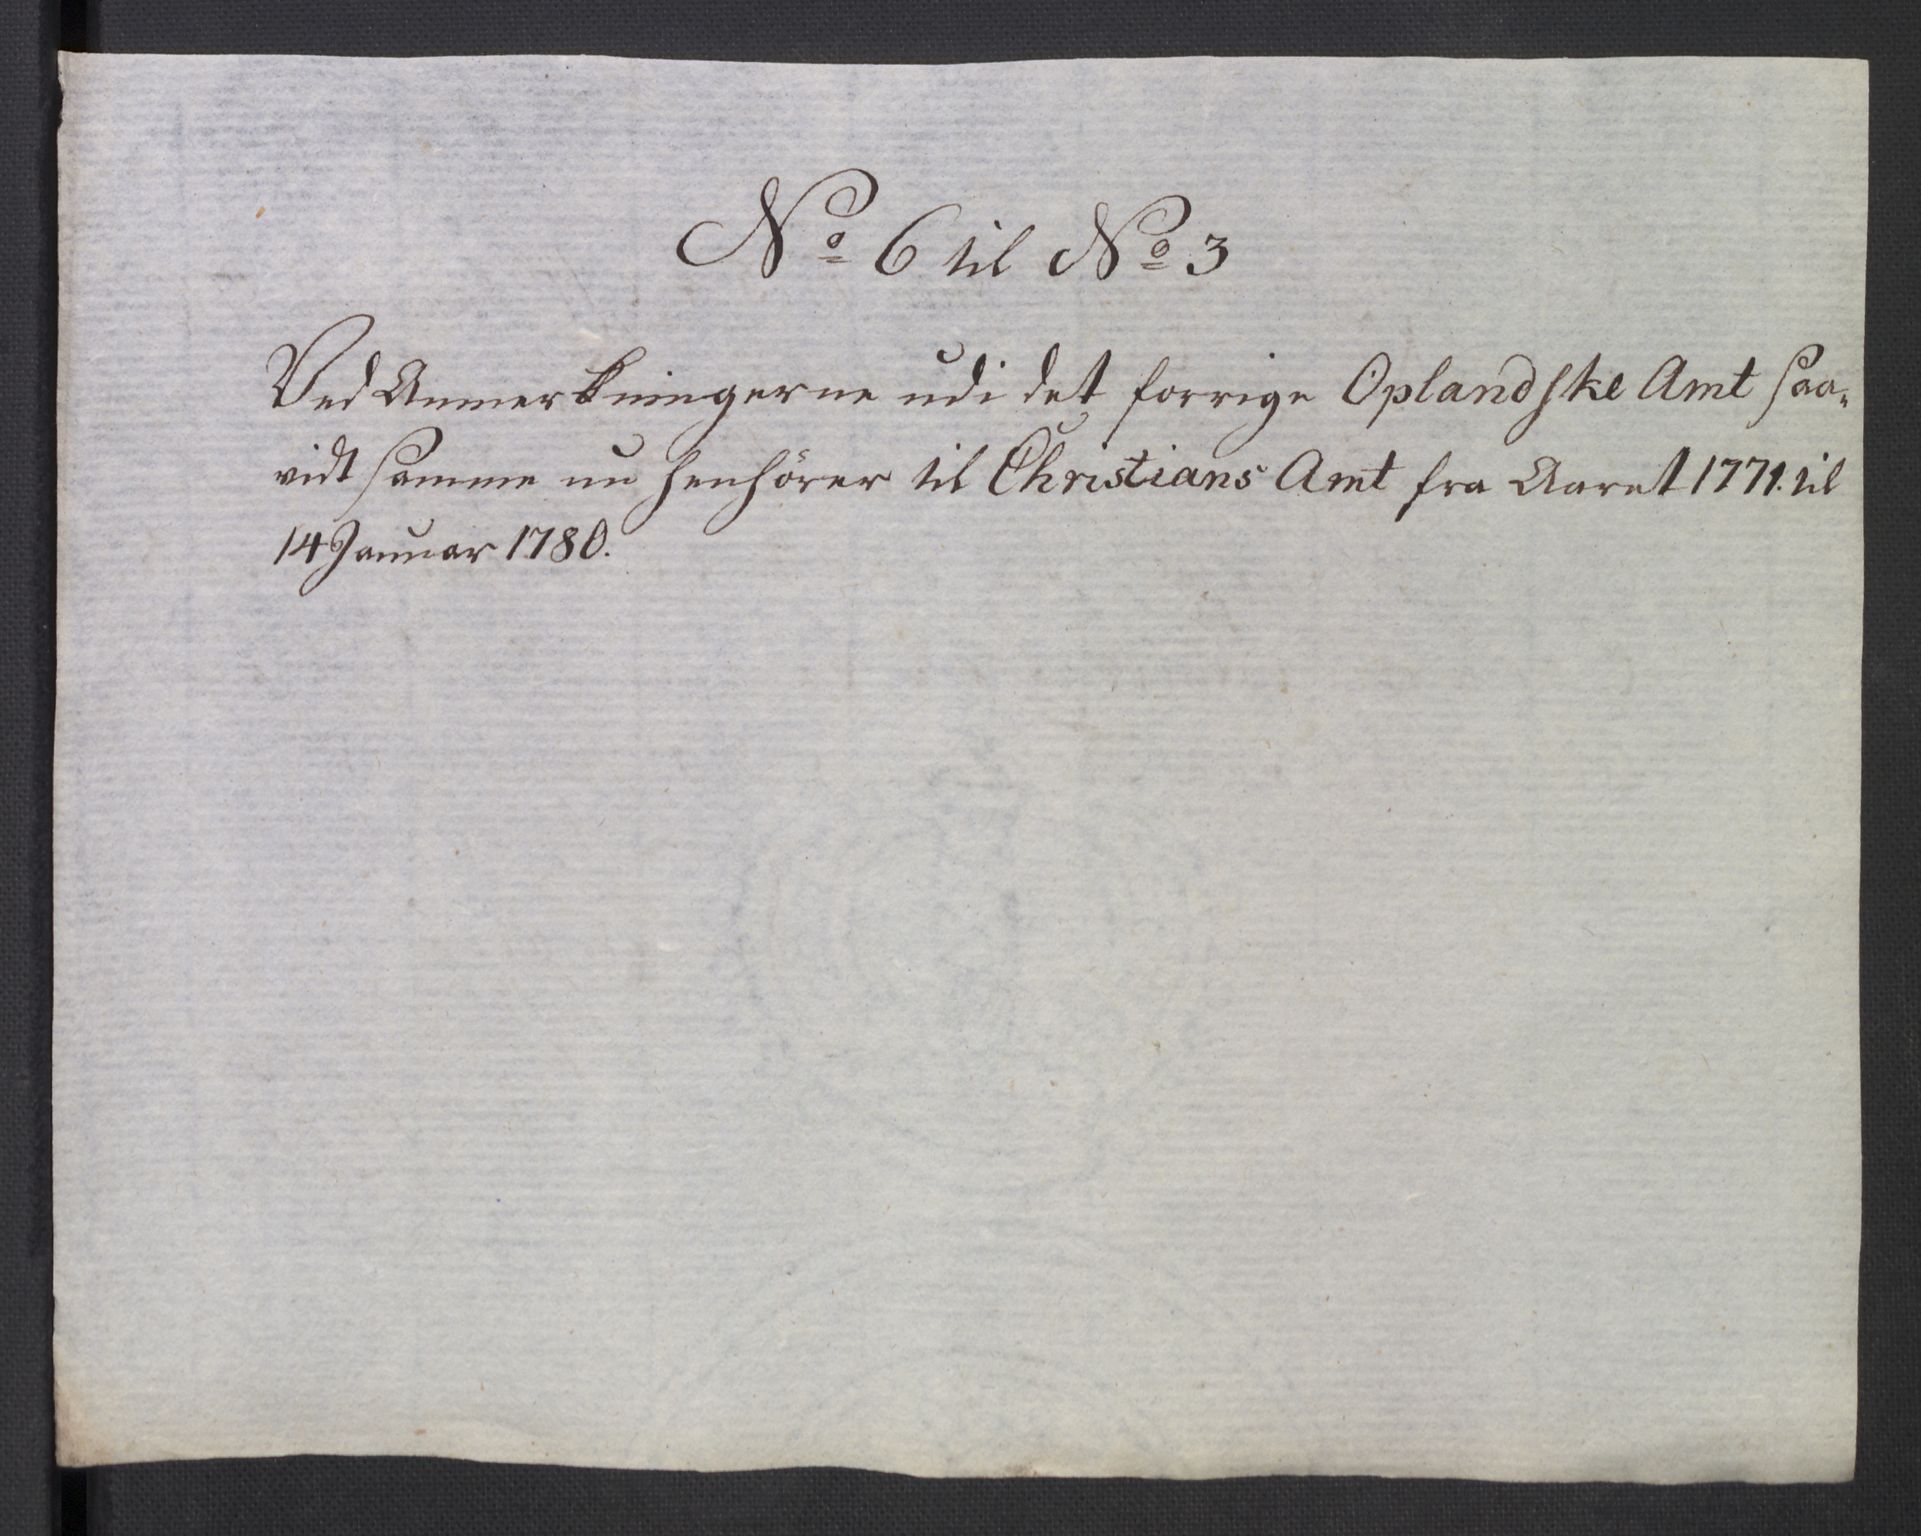 No 6 til No 3
Ved Anmerkningerne udi det forrige Oplandske Amt saa-
vidt samme nu henhörer til Christians Amt fra Aaret 1771. til
14 Januar 1780.